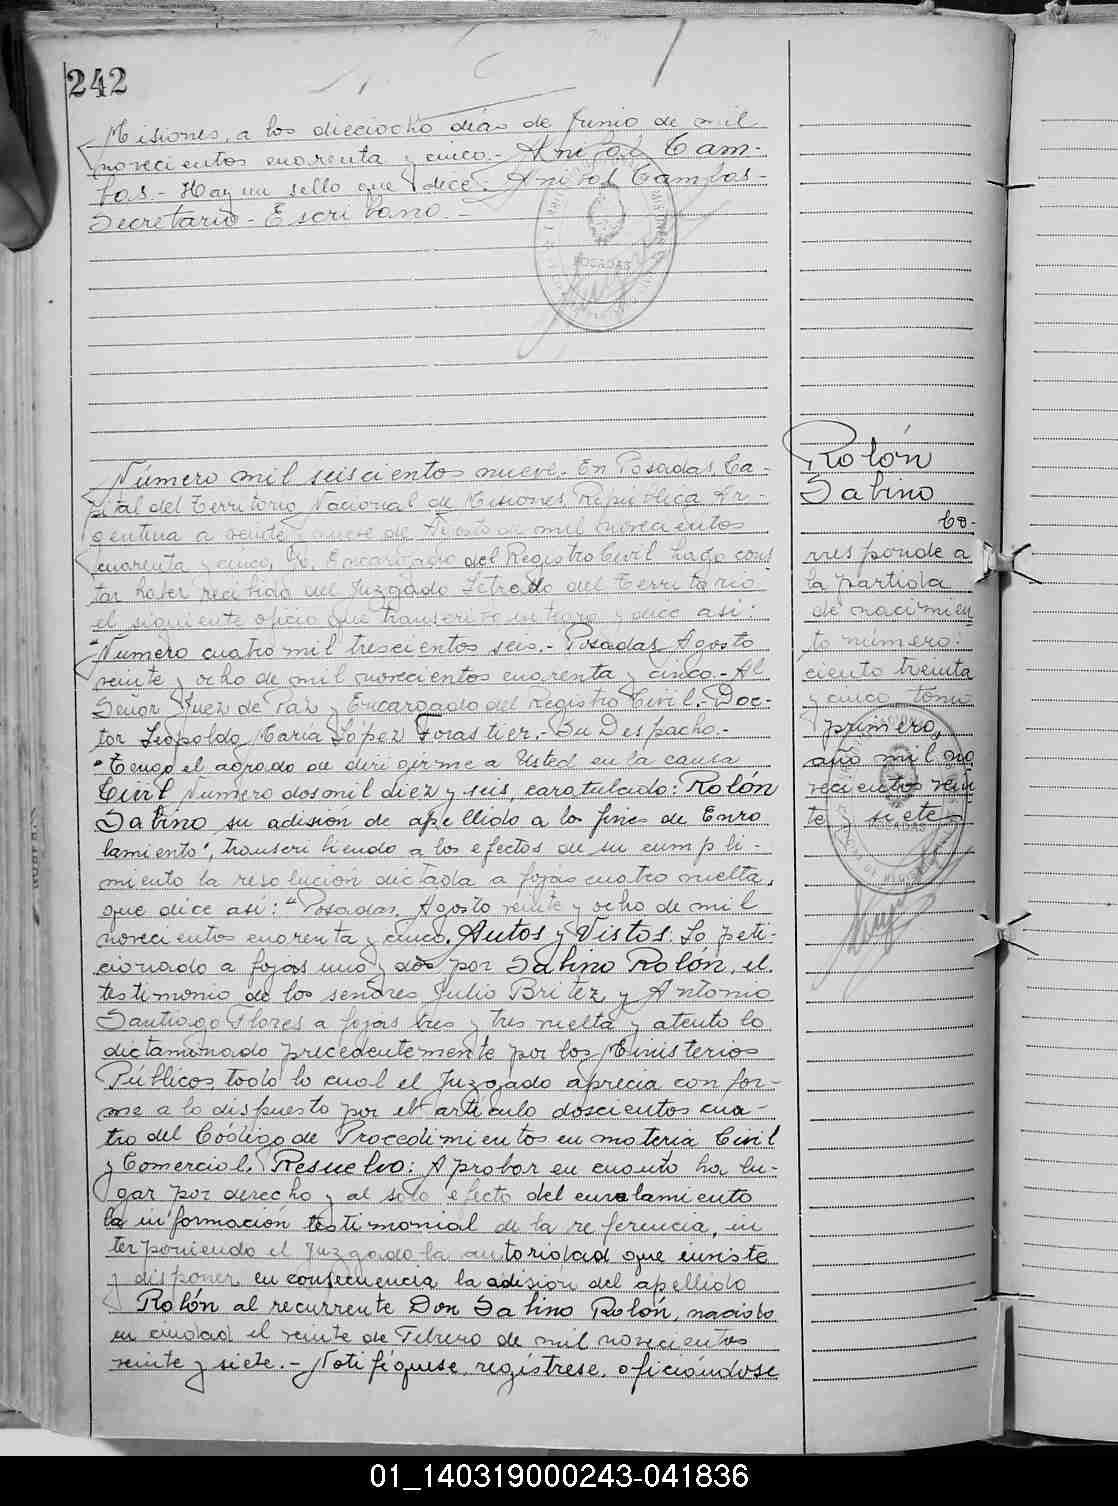 242
Misiones, a los dieciocho días de Junio de mil
novecientos cuarenta y cinco.- Anibal Cam-
pos.- Hay un sello que dice: Anibal Campos-
Secretario - Escribano.-
POSADAS
Número mil seiscientos nueve. En Posadas, Ca-
pital del Territorio Nacional de Misiones, República Ar-
gentina a veinte y nueve de Agosto de mil novecientos
cuarenta y cinco, Yo Encargado del Registro Civil hago cons
tar haber recibido del Juzgado Letrado del Territorio
el siguiente oficio que transcrito integro y dice así:
"Número cuatro mil trescientos seis.- Posadas, Agosto
veinte y ocho de mil novecientos cuarenta y cinco.- Al
Señor Juez de Paz y Encargado del Registro Civil.- Doc-
tor Leopoldo María López Forastier.- Su Despacho.-
"Tengo el agrado de dirigirme a Usted en la causa
Civil Número dos mil diez y seis, caratulado: Rolón
Sabino su adisión de apellido a los fines de Enro
lamiento", transcribiendo a los efectos de su cumpli-
miento la resolución dictada a fojas cuatro vuelta,
que dice así: "Posadas, Agosto veinte y ocho de mil
novecientos cuarenta y cinco. Autos y Vistos: Lo peti-
cionado a fojas uno y dos por Sabino Rolón, el
testimonio de los señores Julio Britez y Antonio
Santiago Flores a fojas tres y tres vuelta y atento lo
dictaminado precedentemente por los Ministerios
Públicos, todo lo cual el Juzgado aprecia con for-
me a lo dispuesto por el artículo doscientos cua-
tro del Código de Procedimientos en materia Civil
y Comercial, Resuelvo: Aprobar en cuanto ha lu-
gar por derecho y al solo efecto del enrolamiento
la información testimonial de la referencia, in
terponiendo el Juzgado la autoridad que inviste
y disponer en consecuencia la adision del apellido
Rolón al recurrente Don Sabino Rolón, nacido
en ciudad el veinte de Febrero de mil novecientos
veinte y siete.- Notifíquese, regístrese, oficiándose
Rolón
Sabino
Co-
rresponde a
la partida
de nacimien
to número:
ciento treinta
y cinco tomo
primero,
año mil no
vecientos vein
te y siete
POSADAS
01_140319000243-041836